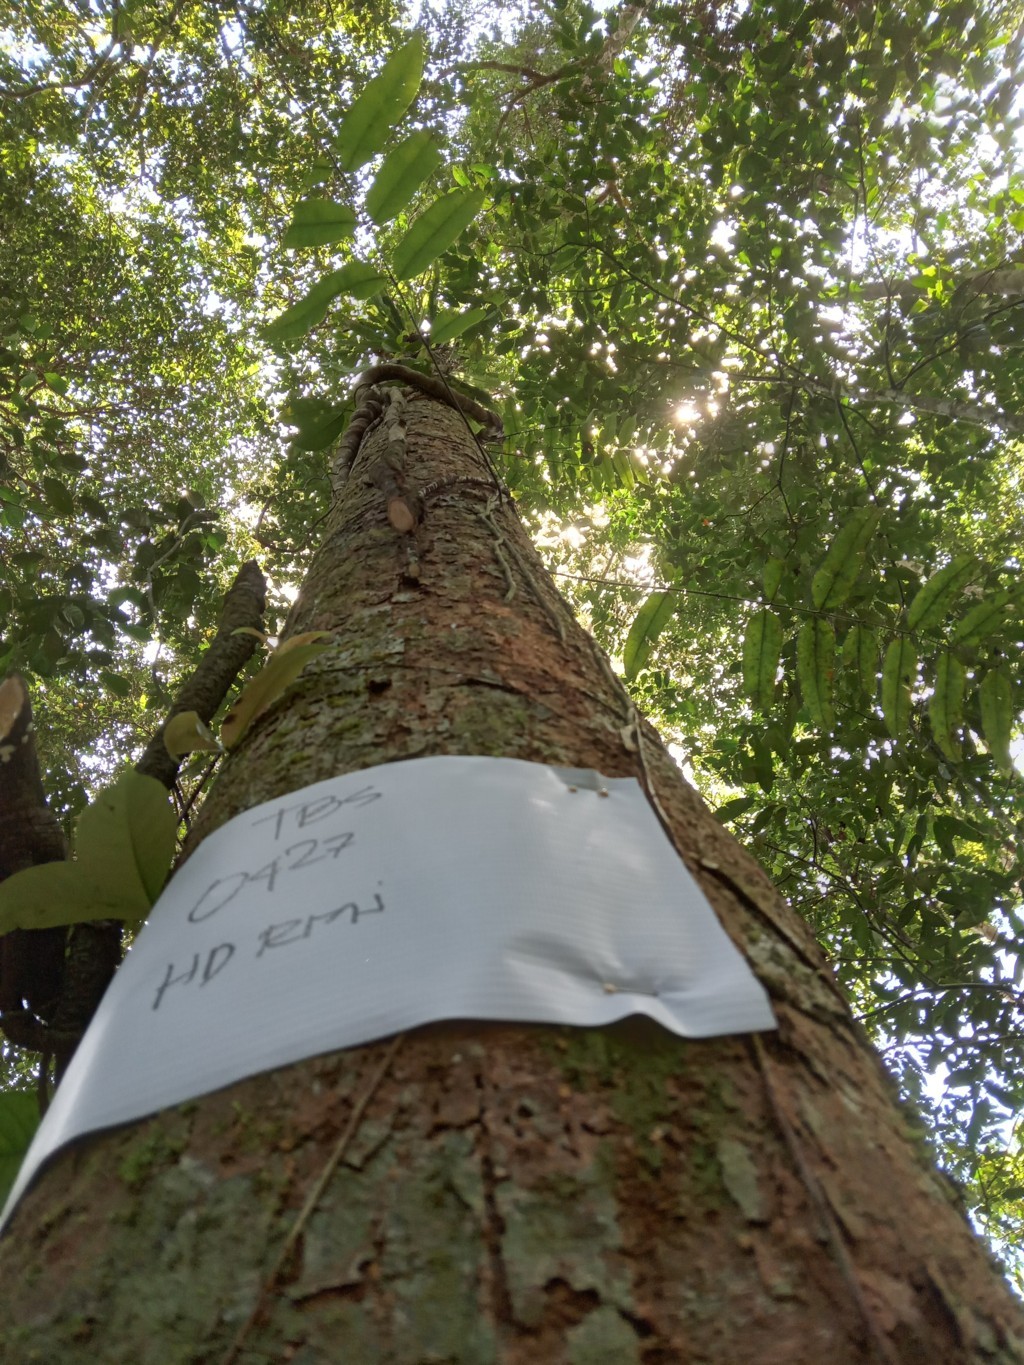 TBS
0427
HD RMi